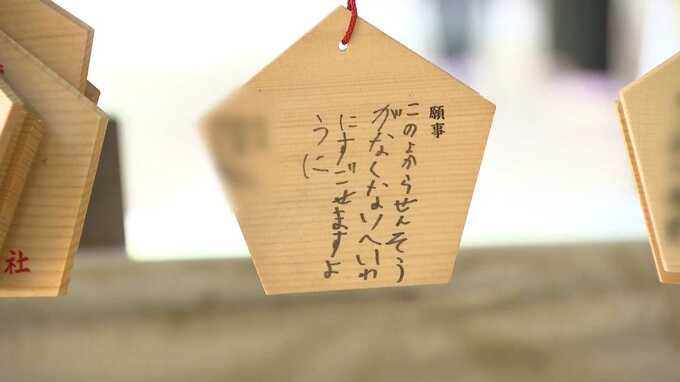 願事
このよからせんそう
がなくなりへいわ
にすごせますよ
うに
社